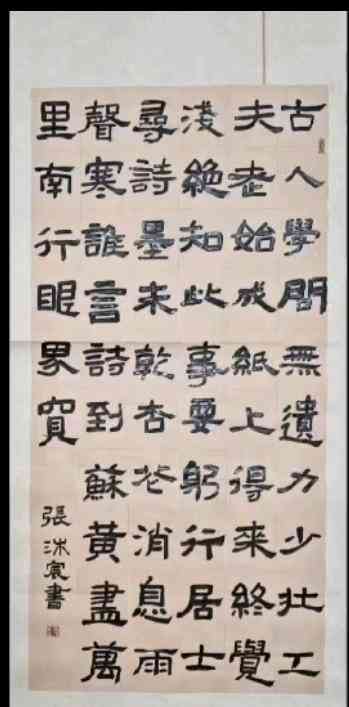 古人學問無遺力少壮工
夫老始成紙上得來終覺
淺絶知此事要躬行居士
尋詩墨未乾杏花消息雨
聲寒誰言詩到蘇黃盡萬
里南行眼界寬
張沐宸書